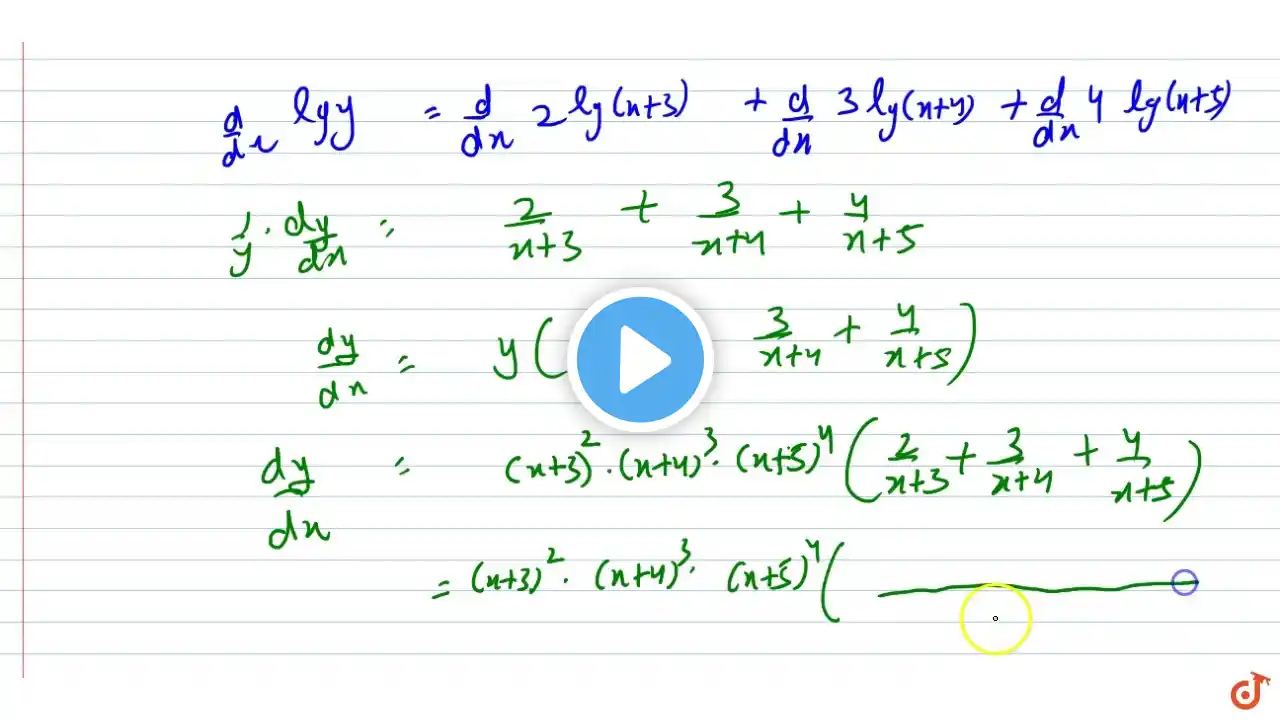 d/dx lgy = d/dx 2 lg(x+3) + d/dx 3 lg(x+4) + d/dx 4 lg(x+5)
1/y · dy/dx = 2/x+3 + 3/x+4 + 4/x+5
dy/dx = y( 3/x+4 + 4/x+5 )
dy/dx = (x+3)² · (x+4)³ · (x+5)⁴ ( 2/x+3 + 3/x+4 + 4/x+5 )
= (x+3)² · (x+4)³ · (x+5)⁴ (